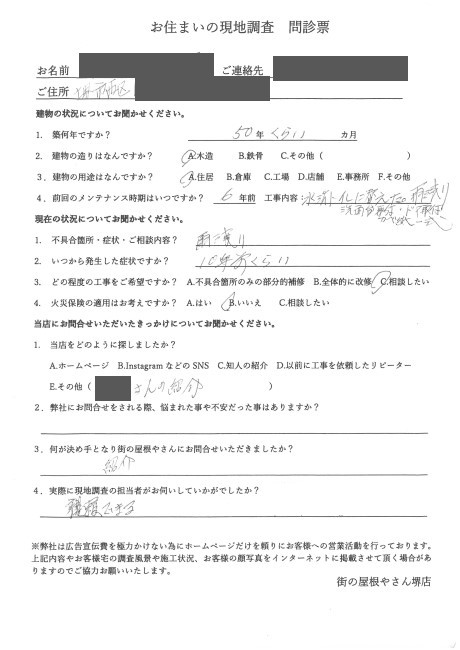 お住まいの現地調査 問診票
お名前 ご連絡先
ご住所 堺市西区
建物の状況についてお聞かせください。
1. 築何年ですか? 50年くらい カ月
2. 建物の造りはなんですか? A.木造 B.鉄骨 C.その他( )
3. 建物の用途はなんですか? A.住居 B.倉庫 C.工場 D.店舗 E.事務所 F.その他
4. 前回のメンテナンス時期はいつですか? 6年前 工事内容 水洗トイレに変えた。雨漏り
現在の状況についてお聞かせください。
1. 不具合箇所・症状・ご相談内容? 雨漏り
2. いつから発生した症状ですか? 10年前くらい
3. どの程度の工事をご希望ですか? A.不具合箇所のみの部分的補修 B.全体的に改修 C.相談したい
4. 火災保険の適用はお考えですか? A.はい B.いいえ C.相談したい
当店にお問合せいただいたきっかけについてお聞かせください。
1. 当店をどのように探しましたか?
A.ホームページ B.InstagramなどのSNS C.知人の紹介 D.以前に工事を依頼したリピーター
E.その他( さんの紹介 )
2. 弊社にお問合せをされる際、悩まれた事や不安だった事はありますか?
3. 何が決め手となり街の屋根やさんにお問合せいただきましたか?
紹介
4. 実際に現地調査の担当者がお伺いしていかがでしたか?
信頼できる
※弊社は広告宣伝費を極力かけない為にホームページだけを頼りにお客様への営業活動を行っております。
上記内容やお客様宅の調査風景や施工状況、お客様の顔写真をインターネットに掲載させて頂く場合があ
りますのでご協力お願いいたします。
街の屋根やさん堺店